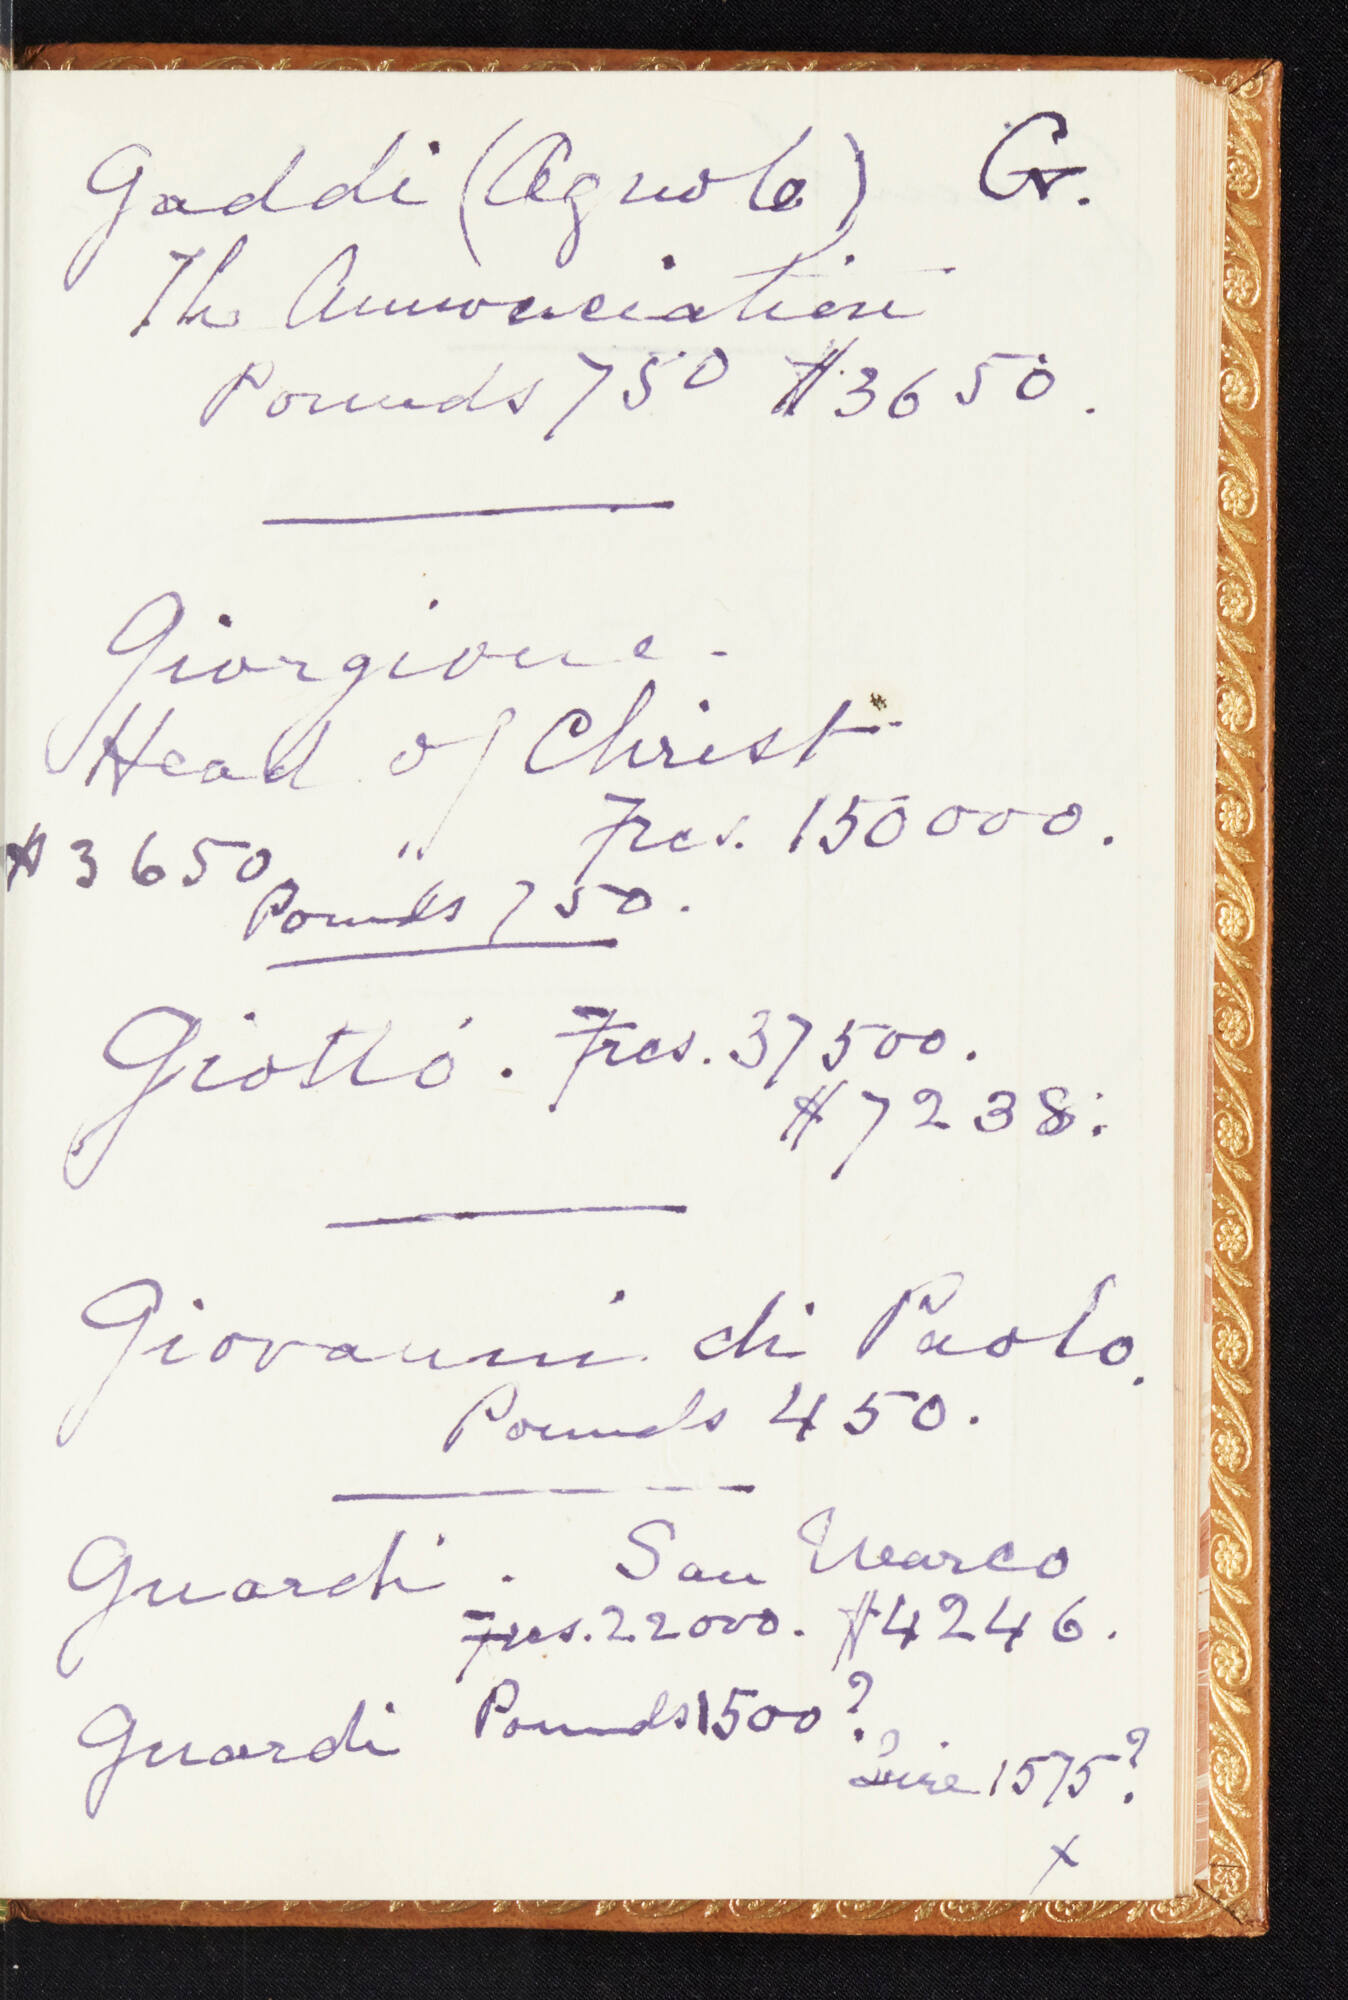 Gaddi (Agnolo) G.
The Annunciation
Pounds 750 $3650.
Giorgione.
Head of Christ
Frcs. 150000.
$3650 "
Pounds 750.
Giotto. Frcs. 37500.
$7238.
Giovanni di Paolo.
Pounds 450.
Guardi. San Marco
Frcs. 22000. $4246.
Guardi Pounds 1500?
Lire 1575?
x